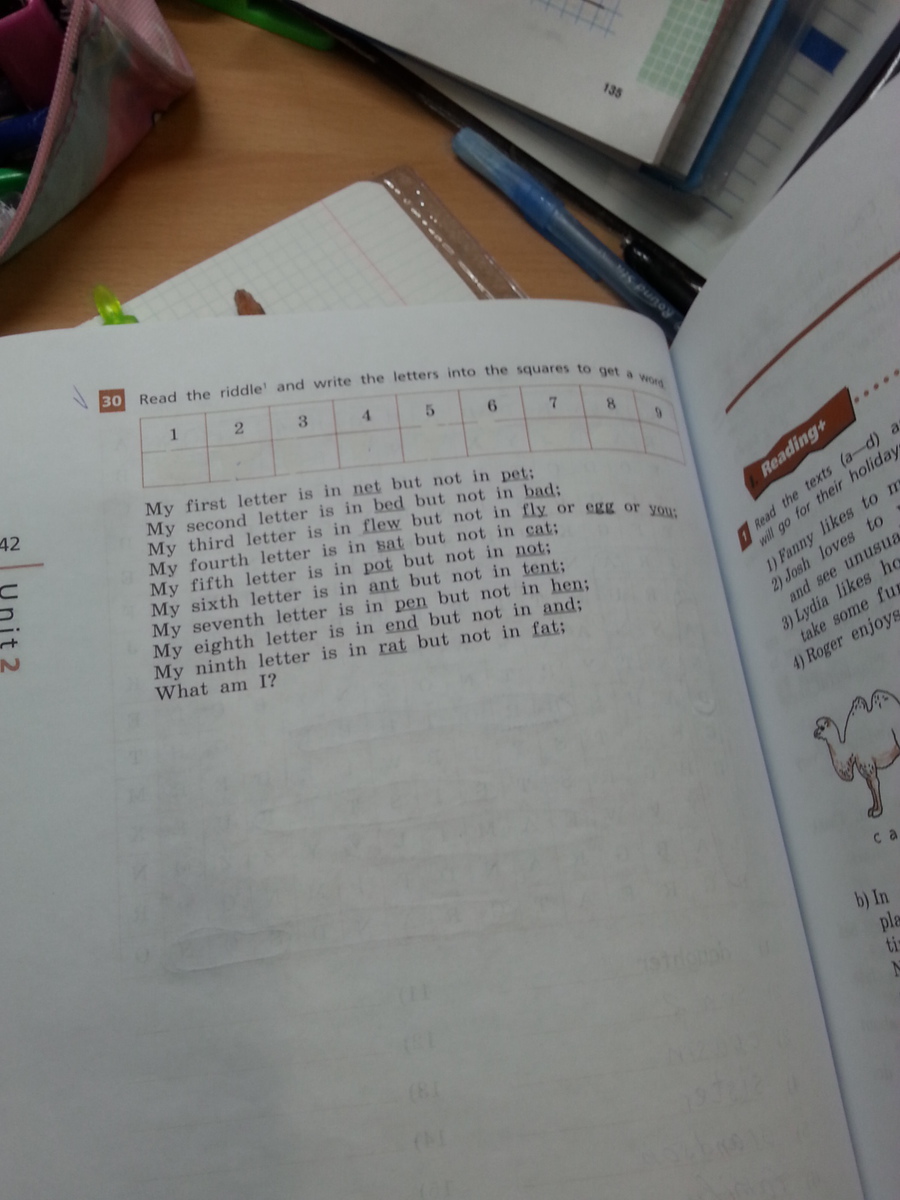 135
Round Stic
30 Read the riddle¹ and write the letters into the squares to get a word
1 2 3 4 5 6 7 8 9
My first letter is in net but not in pet;
My second letter is in bed but not in bad;
My third letter is in flew but not in fly or egg or you;
My fourth letter is in sat but not in cat;
My fifth letter is in pot but not in not;
My sixth letter is in ant but not in tent;
My seventh letter is in pen but not in hen;
My eighth letter is in end but not in and;
My ninth letter is in rat but not in fat;
What am I?
42
Unit 2
Reading+
1 Read the texts (a—d) a
will go for their holiday
1) Fanny likes to m
2) Josh loves to
and see unusua
3) Lydia likes ho
take some fur
4) Roger enjoys
c a
b) In
pla
ti
N